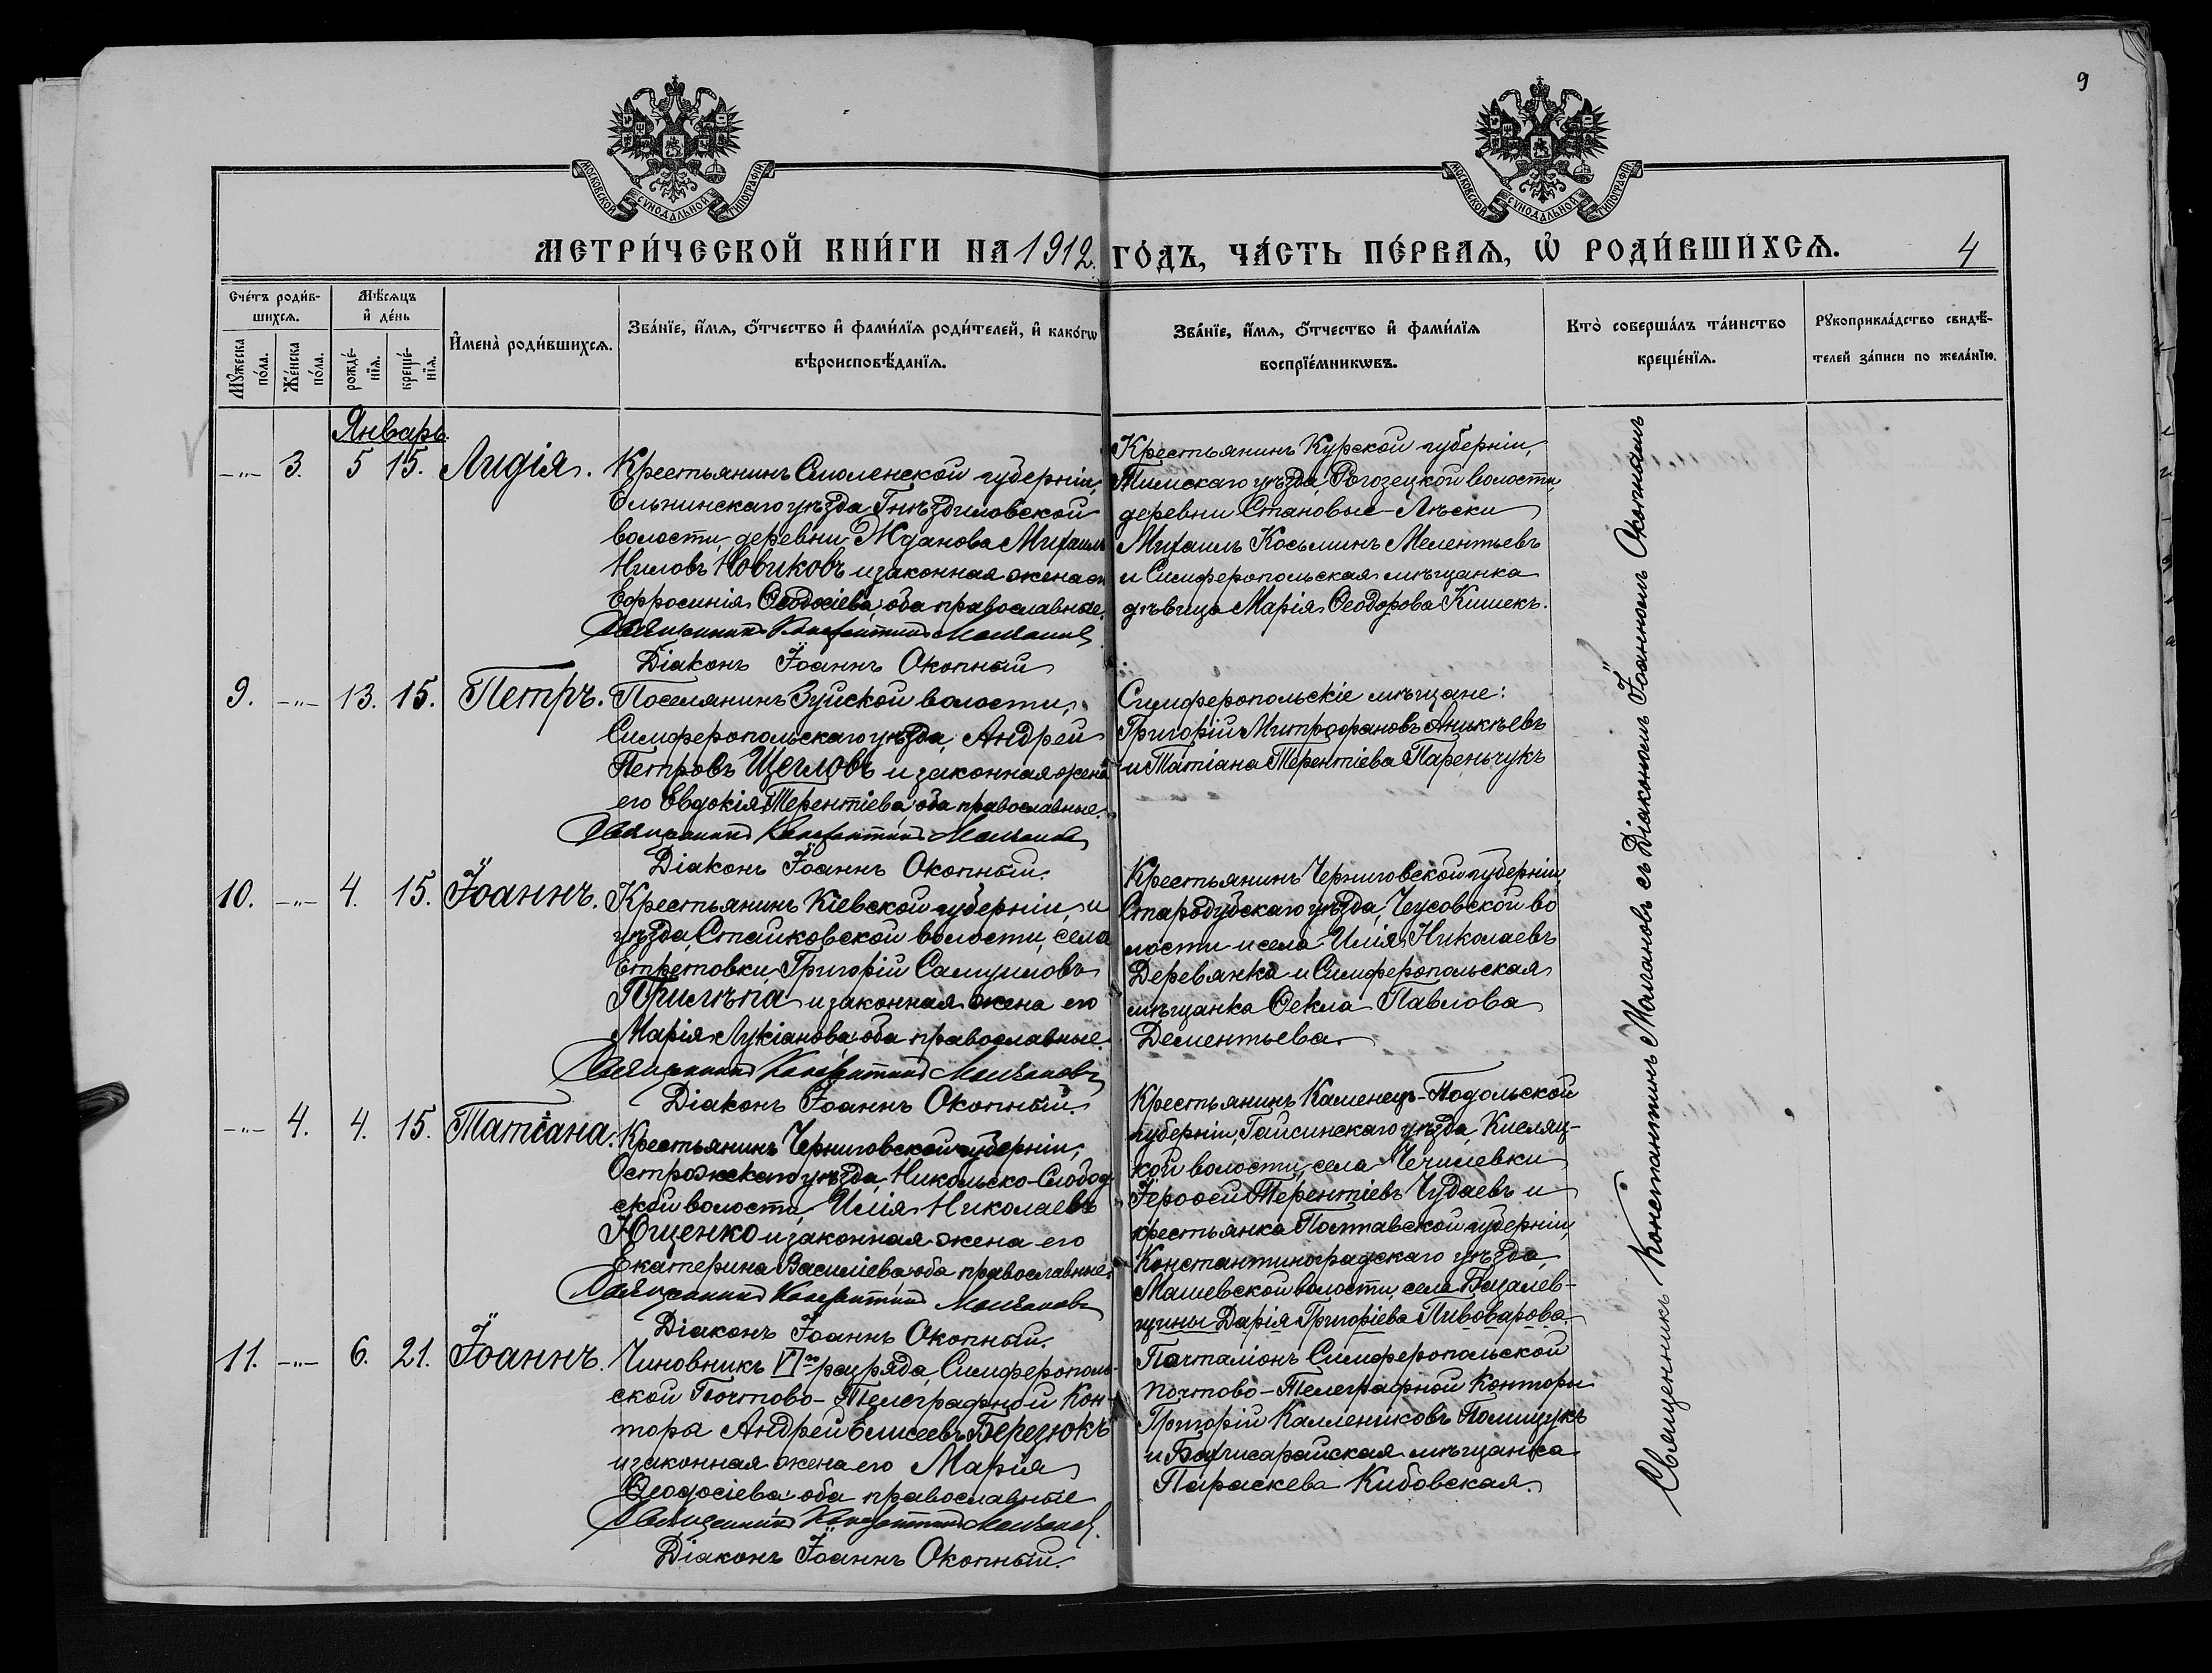 9
МОСКОВСКОЙ СѴНОДАЛЬНОЙ ТИПОГРАФІИ.
МОСКОВСКОЙ СѴНОДАЛЬНОЙ ТИПОГРАФІИ.
МЕТРИ́ЧЕСКОЙ КНИ́ГИ НА 1912. ГО́ДЪ, ЧА́СТЬ ПЕ́РВАѦ, Ѡ҆ РОДИ́ВШИХСѦ.
4
Сче́тъ роди́в-
шихсѧ.
Мꙋ́жеска по́ла.
Же́нска по́ла.
Мѣ́сѧцъ
и҆ де́нь
рожде́-нїѧ.
креще́-нїѧ.
И҆мена̀ роди́вшихсѧ.
Зва́нїе, и҆́мѧ, ѻ҆́тчество и҆ фами́лїѧ роди́телей, и҆ како́гѡ
вѣроисповѣ́данїѧ.
Зва́нїе, и҆́мѧ, ѻ҆́тчество и҆ фами́лїѧ
воспрїе́мникѡвъ.
Кто̀ соверша́лъ та́инство
креще́нїѧ.
Рꙋкоприкла́дство свидѣ́-
телей за́писи по жела́нїю.
Январь.
-„- 3. 5 15. Лидія.
Крестьянинъ Смоленской губерніи,
Ельнинскаго уѣзда, Гнѣздиловской
волости, деревни Жданова Михаилъ
Ниловъ Новиковъ и законная жена его
Евфросинія Ѳеодосіева, оба православные.
Священникъ Константинъ Молчановъ
Діаконъ Іоаннъ Окопный
Крестьянинъ Курской губерніи,
Тимскаго уѣзда, Рогозецкой волости,
деревни Становые-Лѣски
Михаилъ Косьминъ Мелентьевъ
и Симферопольская мѣщанка
дѣвица Марія Ѳеодорова Кишекъ.
9. -„- 13. 15. Петръ.
Поселянинъ Зуйской волости,
Симферопольскаго уѣзда, Андрей
Петровъ Щегловъ и законная жена
его Евдокія Терентіева, оба православные.
Священникъ Константинъ Молчановъ
Діаконъ Іоаннъ Окопный.
Симферопольскіе мѣщане:
Григорій Митрофановъ Аникѣевъ
и Татіана Терентіева Пареньчукъ
10. -„- 4. 15. Іоаннъ.
Крестьянинъ Кіевской губерніи, и
уѣзда, Стайковской волости, села
Стретовки Григорій Самуиловъ
Примѣпа и законная жена его
Марія Лукіанова, оба православные.
Священникъ Константинъ Молчановъ
Діаконъ Іоаннъ Окопный.
Крестьянинъ Черниговской губерніи,
Стародубскаго уѣзда, Чусовской во
лости и села Илія Николаевъ
Деревянка и Симферопольская
мѣщанка Ѳекла Павлова
Дементьева.
-„- 4. 4. 15. Татіана.
Крестьянинъ Черниговской губерніи,
Острожскаго уѣзда, Никольско-Слобод
ской волости, Илія Николаевъ
Ющенко и законная жена его
Екатерина Василіева, оба православные.
Священникъ Константинъ Молчановъ
Діаконъ Іоаннъ Окопный.
Крестьянинъ Каменецъ-Подольской
губерніи, Гайсинскаго уѣзда, Кисляц-
кой волости, села Чечилевки
Іероѳей Терентіевъ Чудаевъ и
крестьянка Полтавской губерніи,
Константиноградскаго уѣзда,
Машевской волости, села
щины Дарія Григоріева Пивоварова.
11. -„- 6. 21. Іоаннъ.
Чиновникъ VIго разряда, Симферополь-
ской Почтово-Телеграфной Кон-
тора Андрей Елисеевъ Березюкъ
и законная жена его Марія
Ѳеодосіева, оба православные
Священникъ Константинъ Молчановъ.
Діаконъ Іоаннъ Окопный.
Почталіонъ Симферопольской
почтово-Телеграфной Конторы
Григорій Каллениковъ Полищукъ
и Бахчисарайская мѣщанка
Параскева Кибовская.
Священникъ Константинъ Молчановъ съ Діакономъ Іоанномъ Окопнымъ